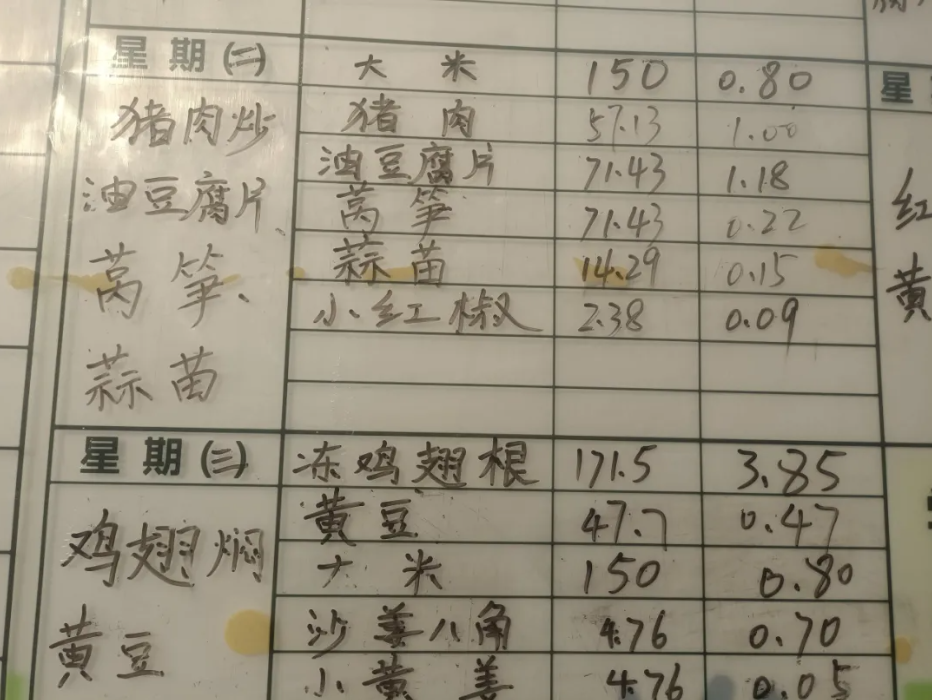 星期(二) 大米 150 0.80
猪肉炒 猪肉 57.13 1.00
油豆腐片、 油豆腐片 71.43 1.18
莴笋 71.43 0.22
莴笋、 蒜苗 14.29 0.15
小红椒 2.38 0.09
蒜苗
星期(三) 冻鸡翅根 171.5 3.85
黄豆 47.7 0.47
鸡翅焖 大米 150 0.80
黄豆 沙姜八角 4.76 0.70
小黄姜 4.76 0.05
星
红
黄